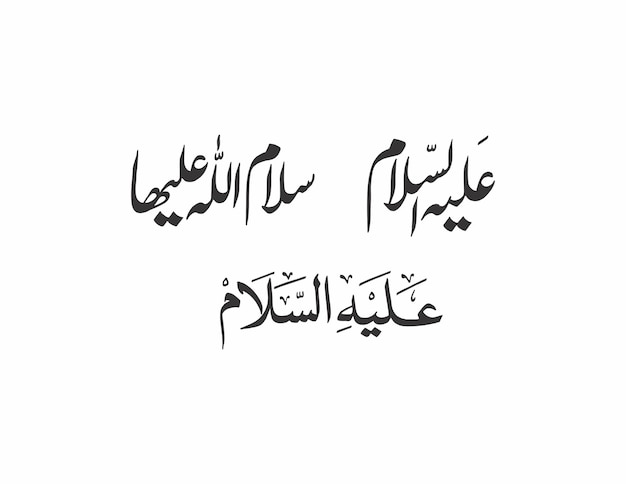 عَلیہ السّلام
سلام اللہ علیها
عَلَيْهِ السَّلَامْ